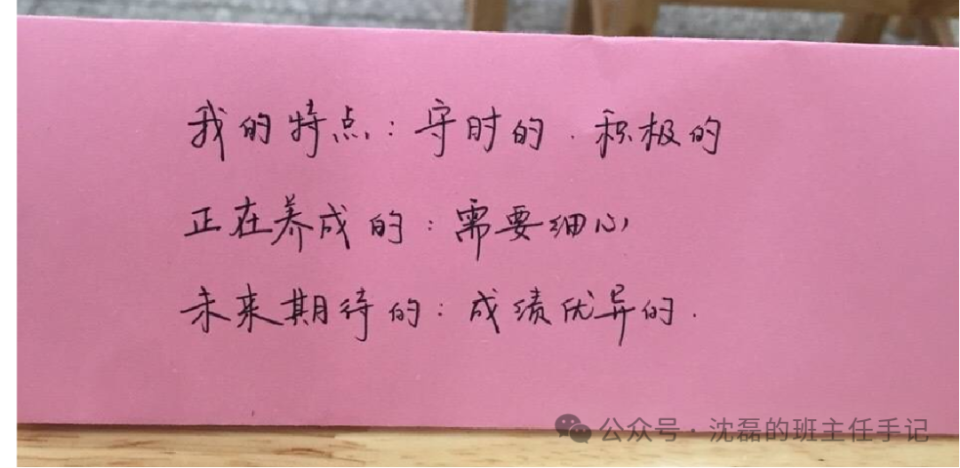 我的特点：守时的、积极的
正在养成的：需要细心
未来期待的：成绩优异的.
公众号·沈磊的班主任手记